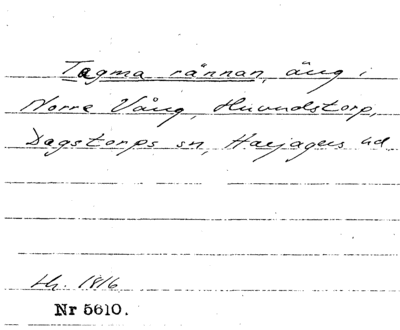 Tagma rännan, äng i
Norre Vång, Huvudstorp,
Dagstorps sn, Harjagers hd
Lh. 1816
Nr 5610.